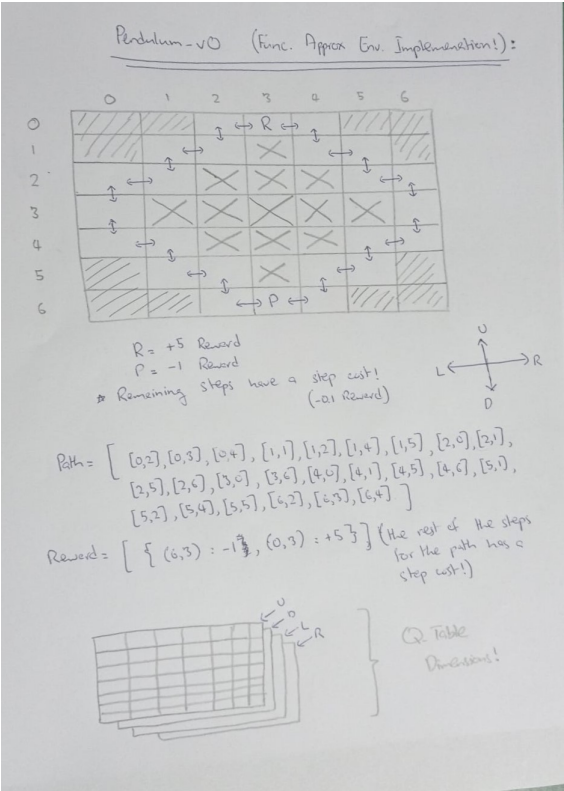 Pendulum-v0 (Func. Approx Env. Implemenation!):
0 1 2 3 4 5 6
0 R
1
2
3
4
5
6 P
R = +5 Reward
P = -1 Reward
* Remaining steps have a step cost!
(-0.1 Reward)
U
L R
D
Path = [ [0,2], [0,3], [0,4], [1,1], [1,2], [1,4], [1,5], [2,0], [2,1],
[2,5], [2,6], [3,0], [3,6], [4,0], [4,1], [4,5], [4,6], [5,1],
[5,2], [5,4], [5,5], [6,2], [6,3], [6,4] ]
Reward = [ { (6,3) : -1}, (0,3) : +5 } ] (the rest of the steps
for the path has a
step cost!)
U
D
L
R
Q. Table
Dimensions!